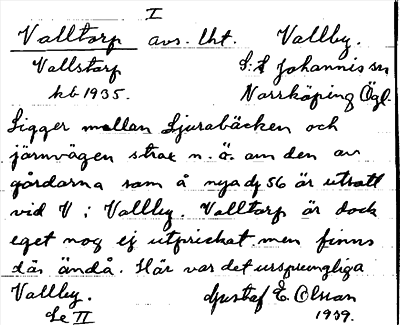 I
Valltorp avs. lht. Vallby.
Vallstorp S:t Johannis sn
kb 1935. Norrköping Ögl.
Ligger mellan Ljurabäcken och
järnvägen strax n.ö. om den av
gårdarna som å nya dj 56 är utsatt
vid V i Vallby. Valltorp är dock
eget nog ej utprickat men finns
där ändå. Här var det ursprungliga
Vallby. Gustaf E. Olsson
Se II 1939.